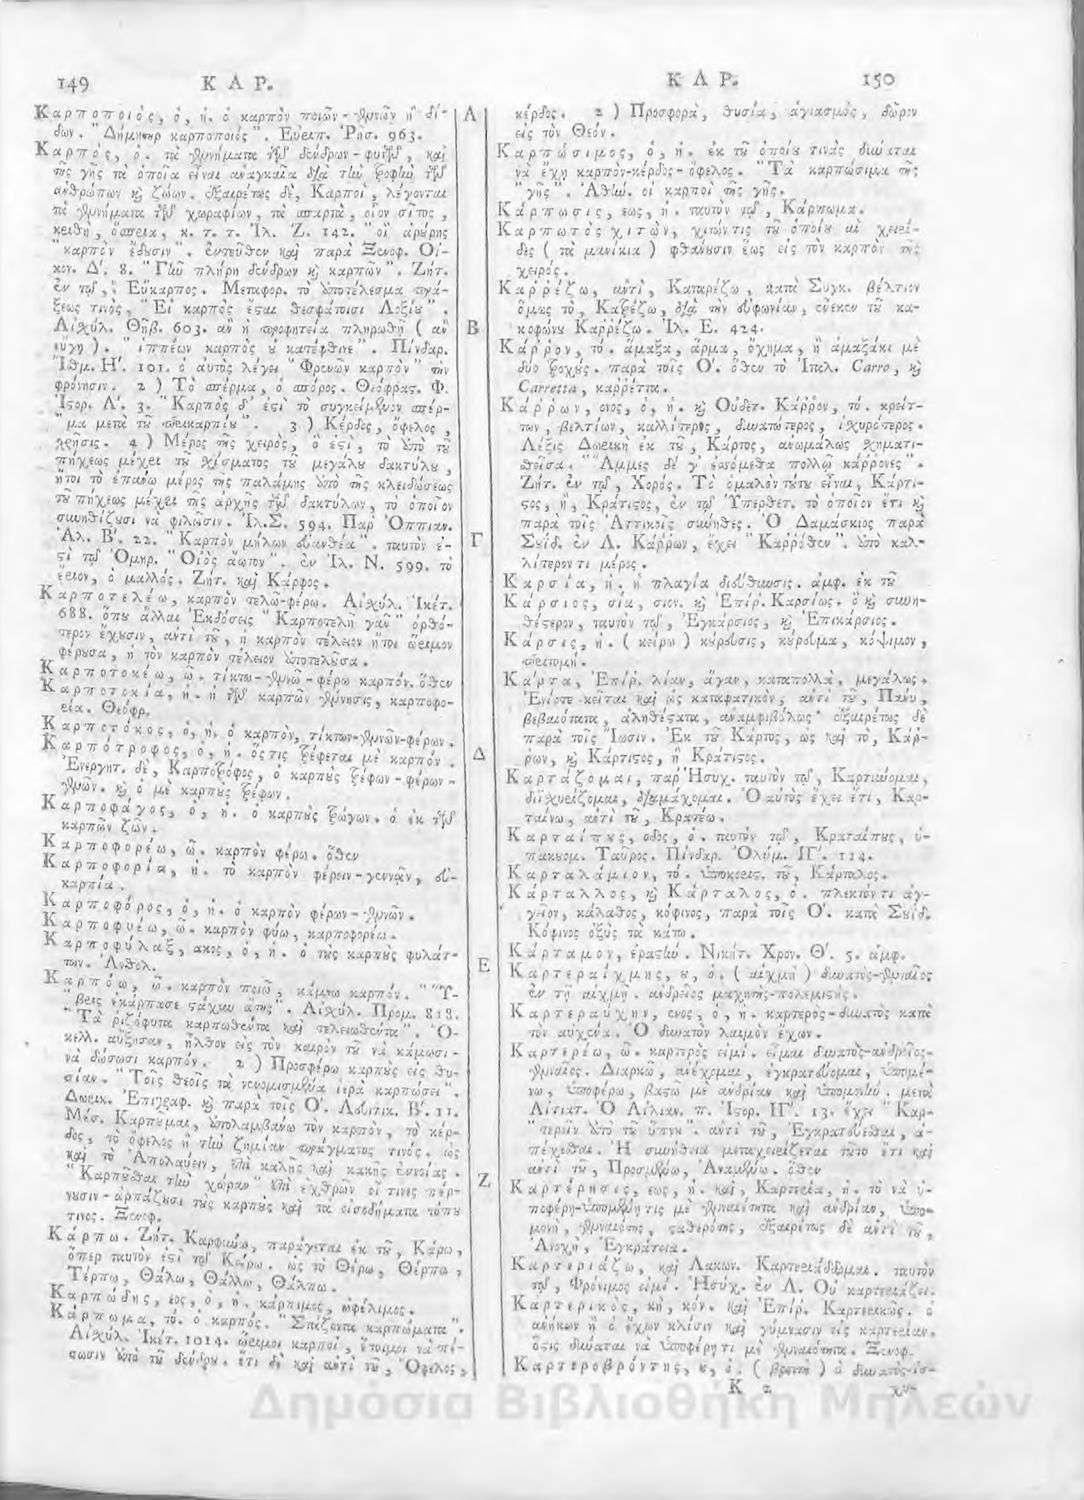 149 ΚΑΡ.
Καρποποιός, ὁ, ἡ. ὁ καρπὸν ποιῶν-γεννῶν ἢ δί-
δων. "Δήμητηρ καρποποιός". Εὐριπ. Ῥῆσ. 963.
Καρπός, ὁ. τὰ γεννήματα τῶν δένδρων-φυτῶν, καὶ
τῆς γῆς τὰ ὁποῖα εἶναι ἀναγκαῖα διὰ τὴν τροφὴν τῶν
ἀνθρώπων καὶ ζώων. ἐξαιρέτως δὲ, Καρποὶ, λέγονται
τὰ γεννήματα τῶν χωραφίων, τὰ σπαρτὰ, οἷον σῖτος,
κριθὴ, ὄσπρια, κ. τ. τ. Ἰλ. Ζ. 142. "οἳ ἀρούρης
"καρπὸν ἔδουσιν". ἐντεῦθεν καὶ παρὰ Ξενοφ. Οἰ-
κον. Δ'. 8. "Γῆν πλήρη δένδρων καὶ καρπῶν". Ζήτ.
ἐν τῷ, Εὔκαρπος. Μεταφορ. τὸ ἀποτέλεσμα πρά-
ξεως τινὸς, "Εἰ καρπὸς ἔσται θεσφάτοισι Λοξίου".
Αἰσχύλ. Θηβ. 603. ἂν ἡ προφητεία πληρωθῇ (ἂν
εὔγῃ). "ἱππέων καρπὸς οὐ κατέφθινε". Πίνδαρ.
Ἰσθμ. Η'. 101. ὁ αὐτὸς λέγει "Φρενῶν καρπὸν" τὴν
φρόνησιν. 2) Τὸ σπέρμα, ὁ σπόρος. Θεόφραστ. Φ.
Ἱστορ. Α'. 3. "Καρπὸς δ' ἐστὶ τὸ συγκείμενον σπέρ-
"μα μετὰ τοῦ περικαρπίου". 3) Κέρδος, ὄφελος,
χρῆσις. 4) Μέρος τῆς χειρὸς, ὅ ἐστὶ, τὸ ἀπὸ τοῦ
πήχεως μέχρι τοῦ σχίσματος τοῦ μεγάλου δακτύλου,
ἤτοι τὸ ἐπάνω μέρος τῆς παλάμης ἀπὸ τῆς κλειδώσεως
τοῦ πήχεως μέχρι τῆς ἀρχῆς τῶν δακτύλων, τὸ ὁποῖον
συνηθίζουσι νὰ φιλῶσιν. Ἰλ. Σ. 594. Παρ' Ὀππιαν.
Ἁλ. Β'. 22. "Καρπὸν μήλων εὐανθέα". ταυτὸν ἐ-
στὶ τῷ Ὁμηρ. "Οἰὸς ἄωτον". ἐν Ἰλ. Ν. 599. τὸ
ἔριον, ὁ μαλλός. Ζήτ. καὶ Κάρφος.
Καρποτελέω, καρπὸν τελῶ-φέρω. Αἰσχύλ. Ἱκέτ.
688. ὅπου ἄλλαι Ἐκδόσεις "Καρποτελῆ γᾶν" ὀρθό-
τερον ἔχουσιν, ἀντὶ τοῦ, ἡ καρπὸν τέλειον ἤτοι ὥριμον
φέρουσα, ἢ τὸν καρπὸν τέλειον ἀποτελοῦσα.
Καρποτοκέω, ῶ. τίκτω-γεννῶ-φέρω καρπόν. ὅθεν
Καρποτοκία, ἡ. ἡ τῶν καρπῶν γέννησις, καρποφο-
ρία. Θεόφρ.
Καρποτόκος, ὁ, ἡ. ὁ καρπὸν, τίκτων-γεννῶν-φέρων.
Καρπότροφος, ὁ, ἡ. ὅς τις τρέφεται μὲ καρπόν.
Ἐνεργητ. δὲ, Καρποτρόφος, ὁ καρποὺς τρέφων-φέρων-
γεννῶν. καὶ ὁ μὲ καρποὺς τρέφων.
Καρποφάγος, ὁ, ἡ. ὁ καρποὺς τρώγων. ὁ ἐκ τῶν
καρπῶν ζῶν.
Καρποφορέω, ῶ. καρπὸν φέρω. ὅθεν
Καρποφορία, ἡ. τὸ καρπὸν φέρειν-γεννᾷν, εὐ-
καρπία.
Καρποφόρος, ὁ, ἡ. ὁ καρπὸν φέρων-γεννῶν.
Καρποφυέω, ῶ. καρπὸν φύω, καρποφορέω.
Καρποφύλαξ, ακος, ὁ, ἡ. ὁ τοὺς καρποὺς φυλάτ-
των. Ἀνθολ.
Καρπόω, ῶ. καρπὸν ποιῶ, κάμνω καρπόν. "Ὕ-
"βρις ἐκάρπωσε στάχυν ἄτης". Αἰσχύλ. Προμ. 818.
"Τὰ ριζόφυτα καρπωθέντα καὶ τελειωθέντα". Ὀ-
κελλ. αὔξησαν, ἦλθον εἰς τὸν καιρὸν τοῦ νὰ κάμωσι-
νὰ δώσωσι καρπόν. 2) Προσφέρω καρποὺς εἰς θυ-
σίαν. "Τοῖς θεοῖς τὰ νενομισμένα ἱερὰ καρπώσει".
Δωρικ. Ἐπιγραφ. καὶ παρὰ τοῖς Ο'. Λευϊτικ. Β'. 11.
Μέσ. Καρποῦμαι, ἀπολαμβάνω τὸν καρπὸν, τὸ κέρ-
δος, τὸ ὄφελος ἢ τὴν ζημίαν πράγματος τινός. ὡς
καὶ τὸ Ἀπολαύειν, ἐπὶ καλῆς καὶ κακῆς ἐννοίας.
"Καρποῦσθαι τὴν χώραν" ἐπὶ ἐχθρῶν οἵ τινες παίρ-
νουσιν-ἁρπάζουσι τοὺς καρποὺς καὶ τὰ εἰσοδήματα τόπου
τινος. Ξενοφ.
Κάρπω. Ζήτ. Καρφύνω, παράγεται ἐκ τοῦ, Κάρω,
ὅπερ ταυτόν ἐστι τῷ Κείρω. ὡς τὸ Θέρω, Θέρπω,
Τέρπω, Θάλω, Θάλλω, Θάλπω.
Καρπώδης, εος, ὁ, ἡ. κάρπιμος, ὠφέλιμος.
Κάρπωμα, τό. ὁ καρπός. "Στάζοντα καρπώματα".
Αἰσχύλ. Ἱκέτ. 1014. ὥριμοι καρποὶ, ἕτοιμοι νὰ πέ-
σωσιν ἀπὸ τοῦ δένδρου. ἔτι δὲ καὶ ἀντὶ τοῦ, Ὄφελος,
Α
Β
Γ
Δ
Ε
Ζ
ΚΑΡ. 150
κέρδος. 2) Προσφορὰ, θυσία, ἁγιασμὸς, δῶρον
εἰς τὸν Θεόν.
Καρπώσιμος, ὁ, ἡ. ἐκ τοῦ ὁποίου τινὰς δύναται
νὰ ἔχῃ καρπὸν-κέρδος-ὄφελος. "Τὰ καρπώσιμα τῆς
"γῆς". Ἀθήν. οἱ καρποὶ τῆς γῆς.
Κάρπωσις, εως, ἡ. ταυτὸν τῷ, Κάρπωμα.
Καρπωτὸς χιτὼν, χιτών τις τοῦ ὁποίου αἱ χειρί-
δες (τὰ μανίκια) φθάνουσιν ἕως εἰς τὸν καρπὸν τῆς
χειρός.
Καρρέζω, ἀντὶ, Καταρέζω, κατὰ Συγκ. βέλτιον
ὅμως τὸ, Καῤῥέζω, διὰ τὴν εὐφωνίαν, ἕνεκεν τοῦ κα-
κοφώνου Καρρέζω. Ἰλ. Ε. 424.
Κάρρον, τό. ἅμαξα, ἅρμα, ὄχημα, ἢ ἁμαξάκι μὲ
δύο τροχούς. παρὰ τοῖς Ο'. ὅθεν τὸ Ἰταλ. Carro, καὶ
Carretta, καρρέττα.
Κάρρων, ονος, ὁ, ἡ. καὶ Οὐδέτ. Κάρρον, τό. κρείτ-
των, βελτίων, καλλίτερος, δυνατώτερος, ἰσχυρότερος.
Λέξις Δωρικὴ ἐκ τοῦ, Κάρτος, ἀνωμάλως σχηματι-
σθεῖσα. "Ἄμμες δέ γ' ἐσσόμεθα πολλῷ κάρρονες".
Ζήτ. ἐν τῷ, Χορός. Τὸ ὁμαλὸν τούτου εἶναι, Κάρτι-
στος, ἢ, Κράτιστος, ἐν τῷ Ὑπερθετ. τὸ ὁποῖον ἔτι καὶ
παρὰ τοῖς Ἀττικοῖς σύνηθες. Ὁ Δαμάσκιος παρὰ
Σουΐδ. ἐν Λ. Κάρρων, ἔχει "Καρρόθεν". ἀπὸ καλ-
λίτερον τι μέρος.
Καρσία, ἡ. ἡ πλαγία διεύθυνσις. ἀμφ. ἐκ τοῦ
Κάρσιος, σία, σιον. καὶ Ἐπίρ. Καρσίως. ὃ καὶ συνη-
θέστερον, ταυτὸν τῷ, Ἐγκάρσιος, καὶ Ἐπικάρσιος.
Κάρσις, ἡ. (κείρω) κούρευσις, κούρευμα, κόψιμον,
περιτομή.
Κάρτα, Ἐπίρ. λίαν, ἄγαν, καταπολλὰ, μεγάλως.
Ἐνίοτε κεῖται καὶ ὡς καταφατικὸν, ἀντὶ τοῦ, Πάνυ,
βεβαιότατα, ἀληθέστατα, ἀναμφιβόλως· ἐξαιρέτως δὲ
παρὰ τοῖς Ἴωσιν. Ἐκ τοῦ Κάρτος, ὡς καὶ τὸ, Κάρ-
ρων, καὶ Κάρτιστος, ἢ Κράτιστος.
Καρτάζομαι, παρ' Ἡσυχ. ταυτὸν τῷ, Καρτύνομαι,
διϊσχυρίζομαι, διαμάχομαι. Ὁ αὐτὸς ἔχει ἔτι, Καρ-
ταίνω, ἀντὶ τοῦ, Κρατέω.
Καρταίπους, οδος, ὁ. ταυτὸν τῷ, Κραταίπους, ὑ-
πακουομ. Ταῦρος. Πίνδαρ. Ὀλύμ. ΙΓ'. 114.
Καρταλάμιον, τό. ὑποκορισ. τοῦ, Κάρταλος.
Κάρταλλος, καὶ Κάρταλος, ὁ. πλεκτόν τι ἀγ-
γεῖον, κάλαθος, κόφινος, παρὰ τοῖς Ο'. κατὰ Σουΐδ.
Κόφινος ὀξὺς τὰ κάτω.
Κάρταμον, ἐρατίω. Νικήτ. Χρον. Θ'. 5. ἀμφ.
Καρτεραίχμης, ου, ὁ. (αἰχμὴ) δυνατὸς-γενναῖος
ἐν τῇ αἰχμῇ. ἀνδρεῖος μαχητὴς-πολεμιστής.
Καρτεραύχην, ενος, ὁ, ἡ. καρτερὸς-δυνατὸς κατὰ
τὸν αὐχένα. Ὁ δυνατὸν λαιμὸν ἔχων.
Καρτερέω, ῶ. καρτερός εἰμι. εἶμαι δυνατὸς-ἀνδρεῖος-
γενναῖος. Διαρκῶ, ἀνέχομαι, ἐγκρατεύομαι, ὑπομέ-
νω, ὑποφέρω, βαστῶ μὲ ἀνδρίαν καὶ ὑπομονήν. μετὰ
Αἰτιατ. Ὁ Αἰλιαν. π. Ἱστορ. ΙΓ'. 13. ἔχει "Καρ-
"τερεῖν ἀπὸ τοῦ ὕπνου". ἀντὶ τοῦ, Ἐγκρατεύεσθαι, ἀ-
πέχεσθαι. Ἡ συνήθεια μεταχειρίζεται τοῦτο ἔτι καὶ
ἀντὶ τοῦ, Προσμένω, Ἀναμένω. ὅθεν
Καρτέρησις, εως, ἡ. καὶ, Καρτερία, ἡ. τὸ νὰ ὑ-
ποφέρῃ-ὑπομένῃ τις μὲ γενναιότητα καὶ ἀνδρίαν, ὑπο-
μονὴ, γενναιότης, σταθερότης, ἐξαιρέτως δὲ ἀντὶ τοῦ,
Ἀνοχὴ, Ἐγκράτεια.
Καρτεριάζω, καὶ Λακων. Καρτεριάδδομαι. ταυτὸν
τῷ, Φρόνιμός εἰμι. Ἡσύχ. ἐν Λ. Οὐ καρτεριάζει.
Καρτερικὸς, κὴ, κόν. καὶ Ἐπίρ. Καρτερικῶς. ὁ
ἀνήκων ἢ ὁ ἔχων κλίσιν καὶ γύμνασιν εἰς καρτερίαν.
ὅστις δύναται νὰ ὑποφέρῃ τι μὲ γενναιότητα. Ξενοφ.
Καρτεροβρόντης, ου, ὁ. (βροντὴ) ὁ δυνατὸς-ἰσ-
Κ 2 χυ-
Δημόσια Βιβλιοθήκη Μηλεών